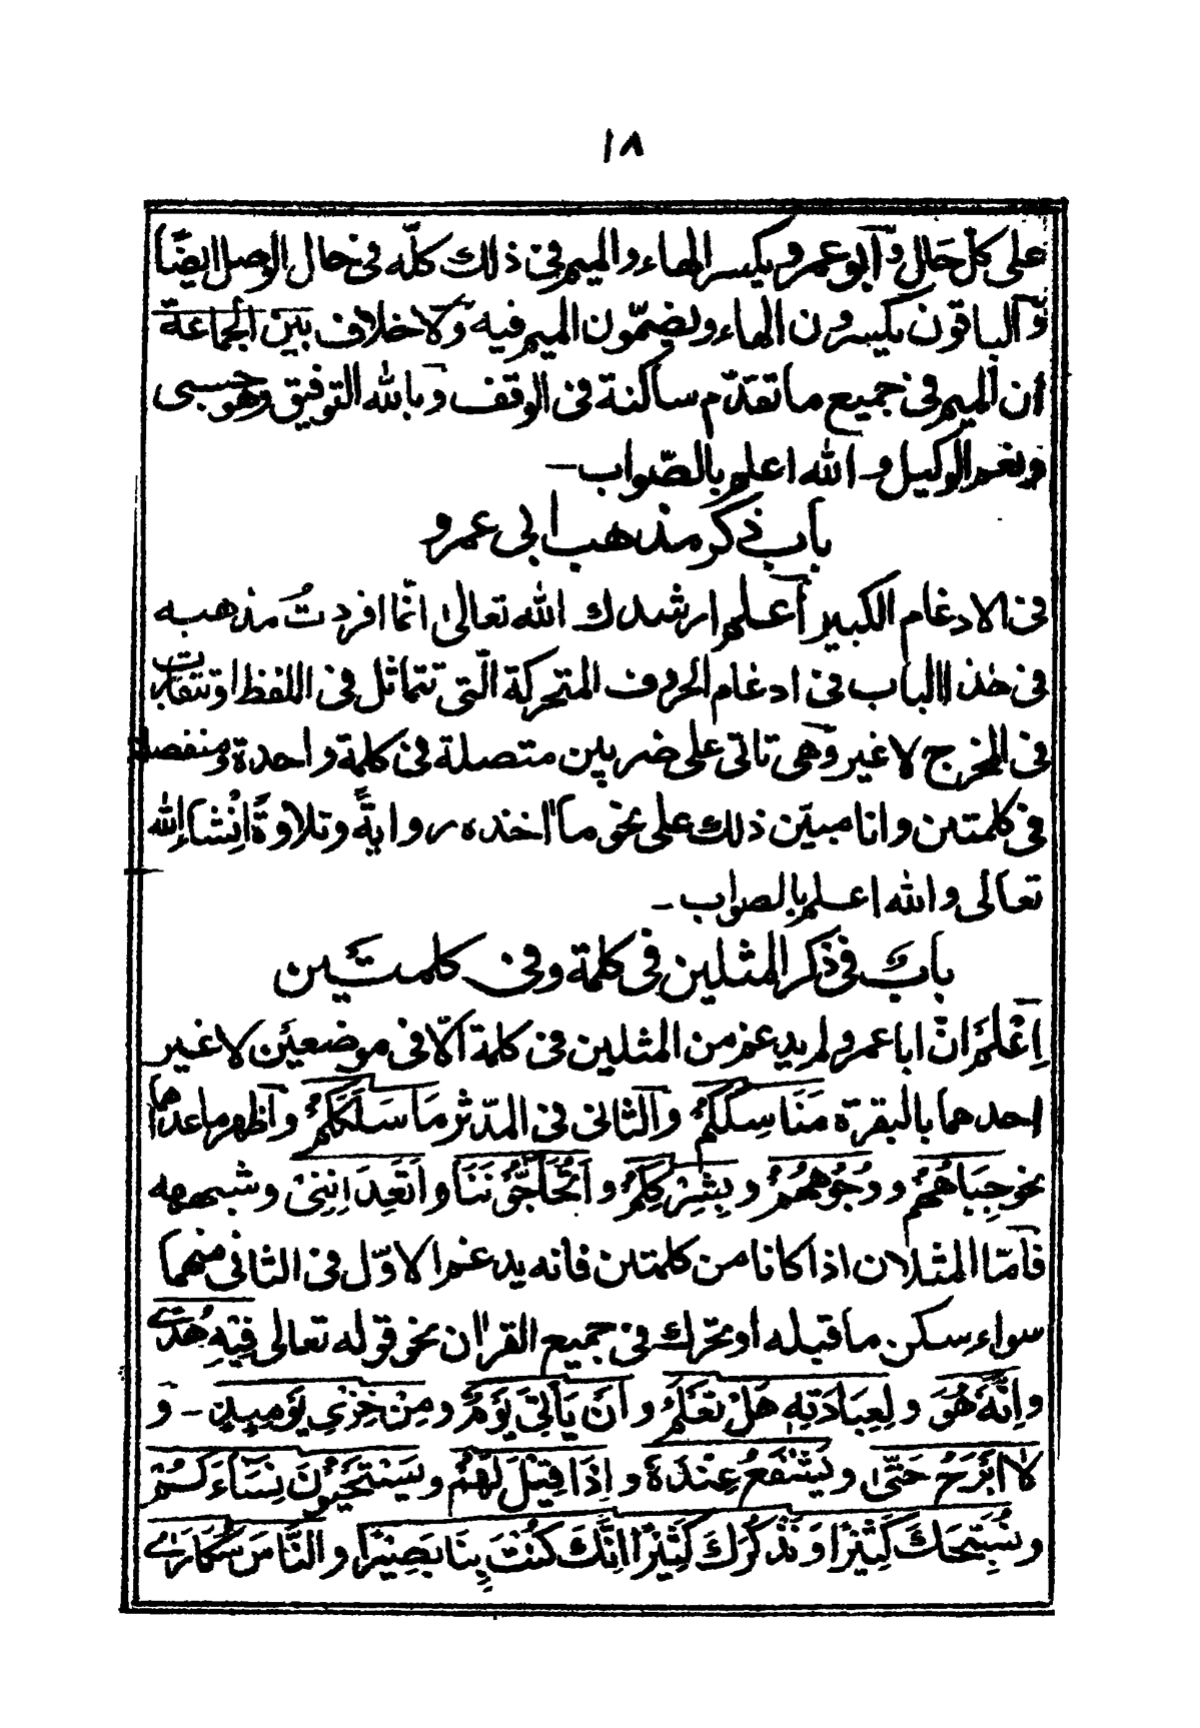 ١٨
على كلّ حَال وّابو عمرو بكسر الهاء والميم فى ذلك كلّه فى حال الوصل ايضًا
وّالباقون بكيسرون الهاء ويضمّون الميم فيه وّلا خلاف بين الجماعة
ان الميم فى جميع ما تقدّم ساكنة فى الوقف وبالله التوفيق وهو حسبى
ونعم الوكيل والله اعلم بالصّواب -
باب ذكر مذهب ابى عمرو
فى الادغام الكبير اعلم ارشدك الله تعالىٰ انّما افردتُ مذهبه
فى هٰذا الباب فى ادغام الحروف المتحركة الّتى تتماثل فى اللفظ او تتقارب
فى المخرج لا غير وهى تاتى على ضربين متصلة فى كلمة واحدة ومنفصلة
فى كلمتين وانا مبيّن ذلك على نحو ما اخذه روايةً وتلاوةً اِنْشاءالله
تعالى والله اعلم بالصواب -
باب فى ذكر المثلين فى كلمة وفى كلمتين
اِعْلَمْ انّ ابا عمرو لم يدغم من المثلين فى كلمة الّا فى موضعيَن لا غير
احدهما بالبقرة مَنَاسِكَكُمْ والثانى فى المدّثر مَا سَلَكَكُمْ واَظهر ما عداهما
نحو جِبَاهُهُمْ و وُجُوهِهِمْ و بِشِرْكِكُمْ و اَتُحَاجُّوْنَنَا و اَتَعِدَانِنِىْ وشبهه
فامّا المثلان اذا كانا من كلمتين فانه يدغم الاوّل فى الثانى منهما
سواء سكن ما قبله او تحرك فى جميع القرآن نحو قوله تعالى فِيْهِ هُدًى
و اِنَّهٗ هُوَ و لِعِبَادَتِهٖ هَلْ تَعْلَمُ و اَنْ يَأْتِىَ يَوْمٌ و مِنْ خِزْىِ يَوْمِئِذٍ - و
لَا اَبْرَحُ حَتّٰى و يَشْفَعُ عِنْدَهٗ و اِذَا قِيْلَ لَهُمْ و يَسْتَحْيُوْنَ نِسَآءَكُمْ
و نُسَبِّحَكَ كَثِيْرًا وَ نَذْكُرَكَ كَثِيْرًا اِنَّكَ كُنْتَ بِنَا بَصِيْرًا و النَّاسَ سُكَارٰى